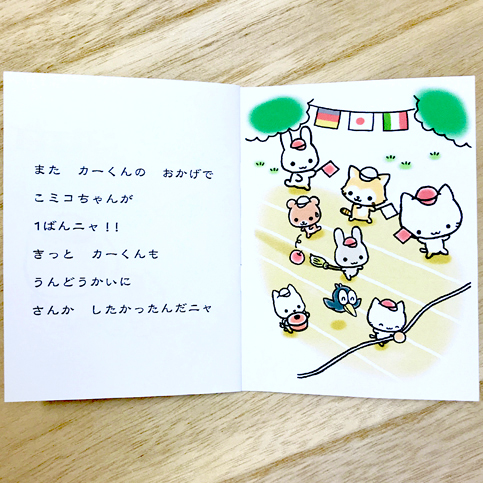 また　カーくんの　おかげで
こミコちゃんが
1ばんニャ!!
きっと　カーくんも
うんどうかいに
さんか　したかったんだニャ